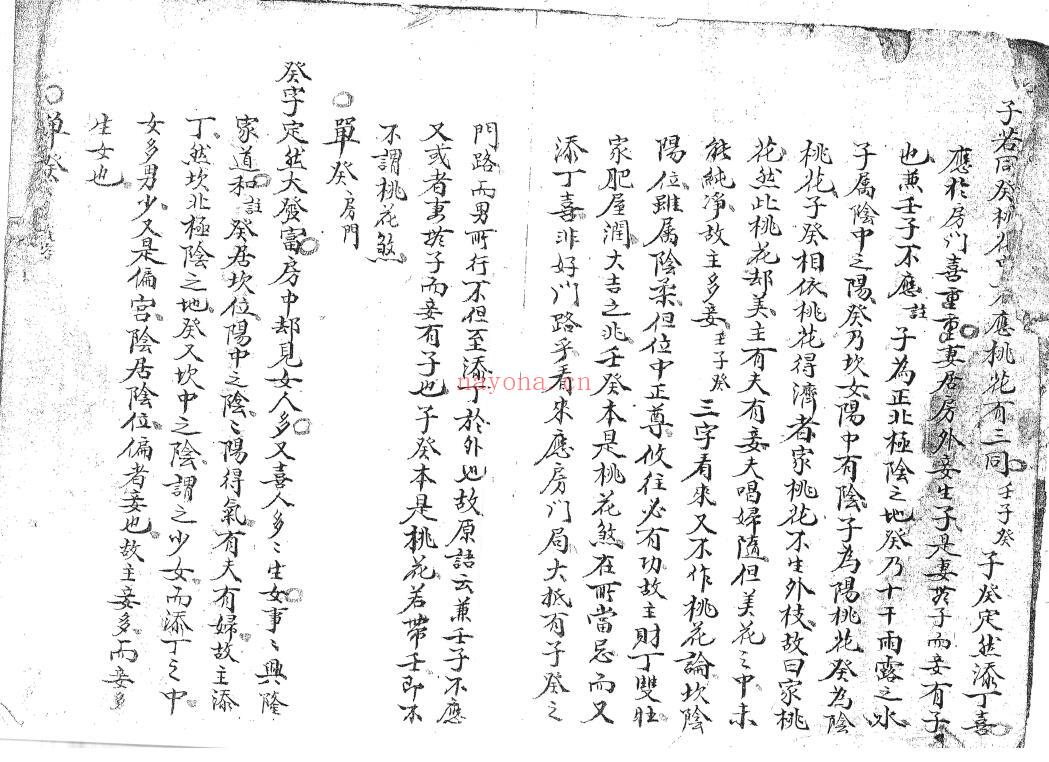 子若同癸桃花中應桃花有三同壬子癸子癸定然添丁喜
應於房門喜重重妻居房外妾生子是妻於子而妾有子
也兼壬子不應註子為正北極陰之地癸乃十干雨露之水
子屬陰中之陽癸乃坎女陽中有陰子為陽桃花癸為陰
桃花子癸相依桃花得濟者家桃花不生外枝故曰家桃
花然此桃花却美主有夫有妾夫唱婦隨但美花之中未
能純凈故主多妾壬子癸三字看來又不作桃花論坎陰
陽位雖屬陰柔但位中正尊攸往必有功故主財丁雙旺
家肥屋潤大吉之兆壬癸本是桃花煞在所當忌而又
添丁喜非好門路乎看來應房門局大抵有子癸之
門路而男所行不但至添丁於外也故原語云兼壬子不應
又或者妻於子而妾有子也子癸本是桃花若帶壬即不
不謂桃花煞
單癸房門
癸字定然大發富房中却見女人多又喜人多〻生女事〻興隆
家道和註癸居坎位陽中之陰〻陽得氣有夫有婦故主添
丁然坎北極陰之地癸又坎中之陰謂之少女而添丁之中
女多男少又是偏宮陰居陰位偏者妾也故主妾多而妾多
生女也
單癸
nayoha.cn